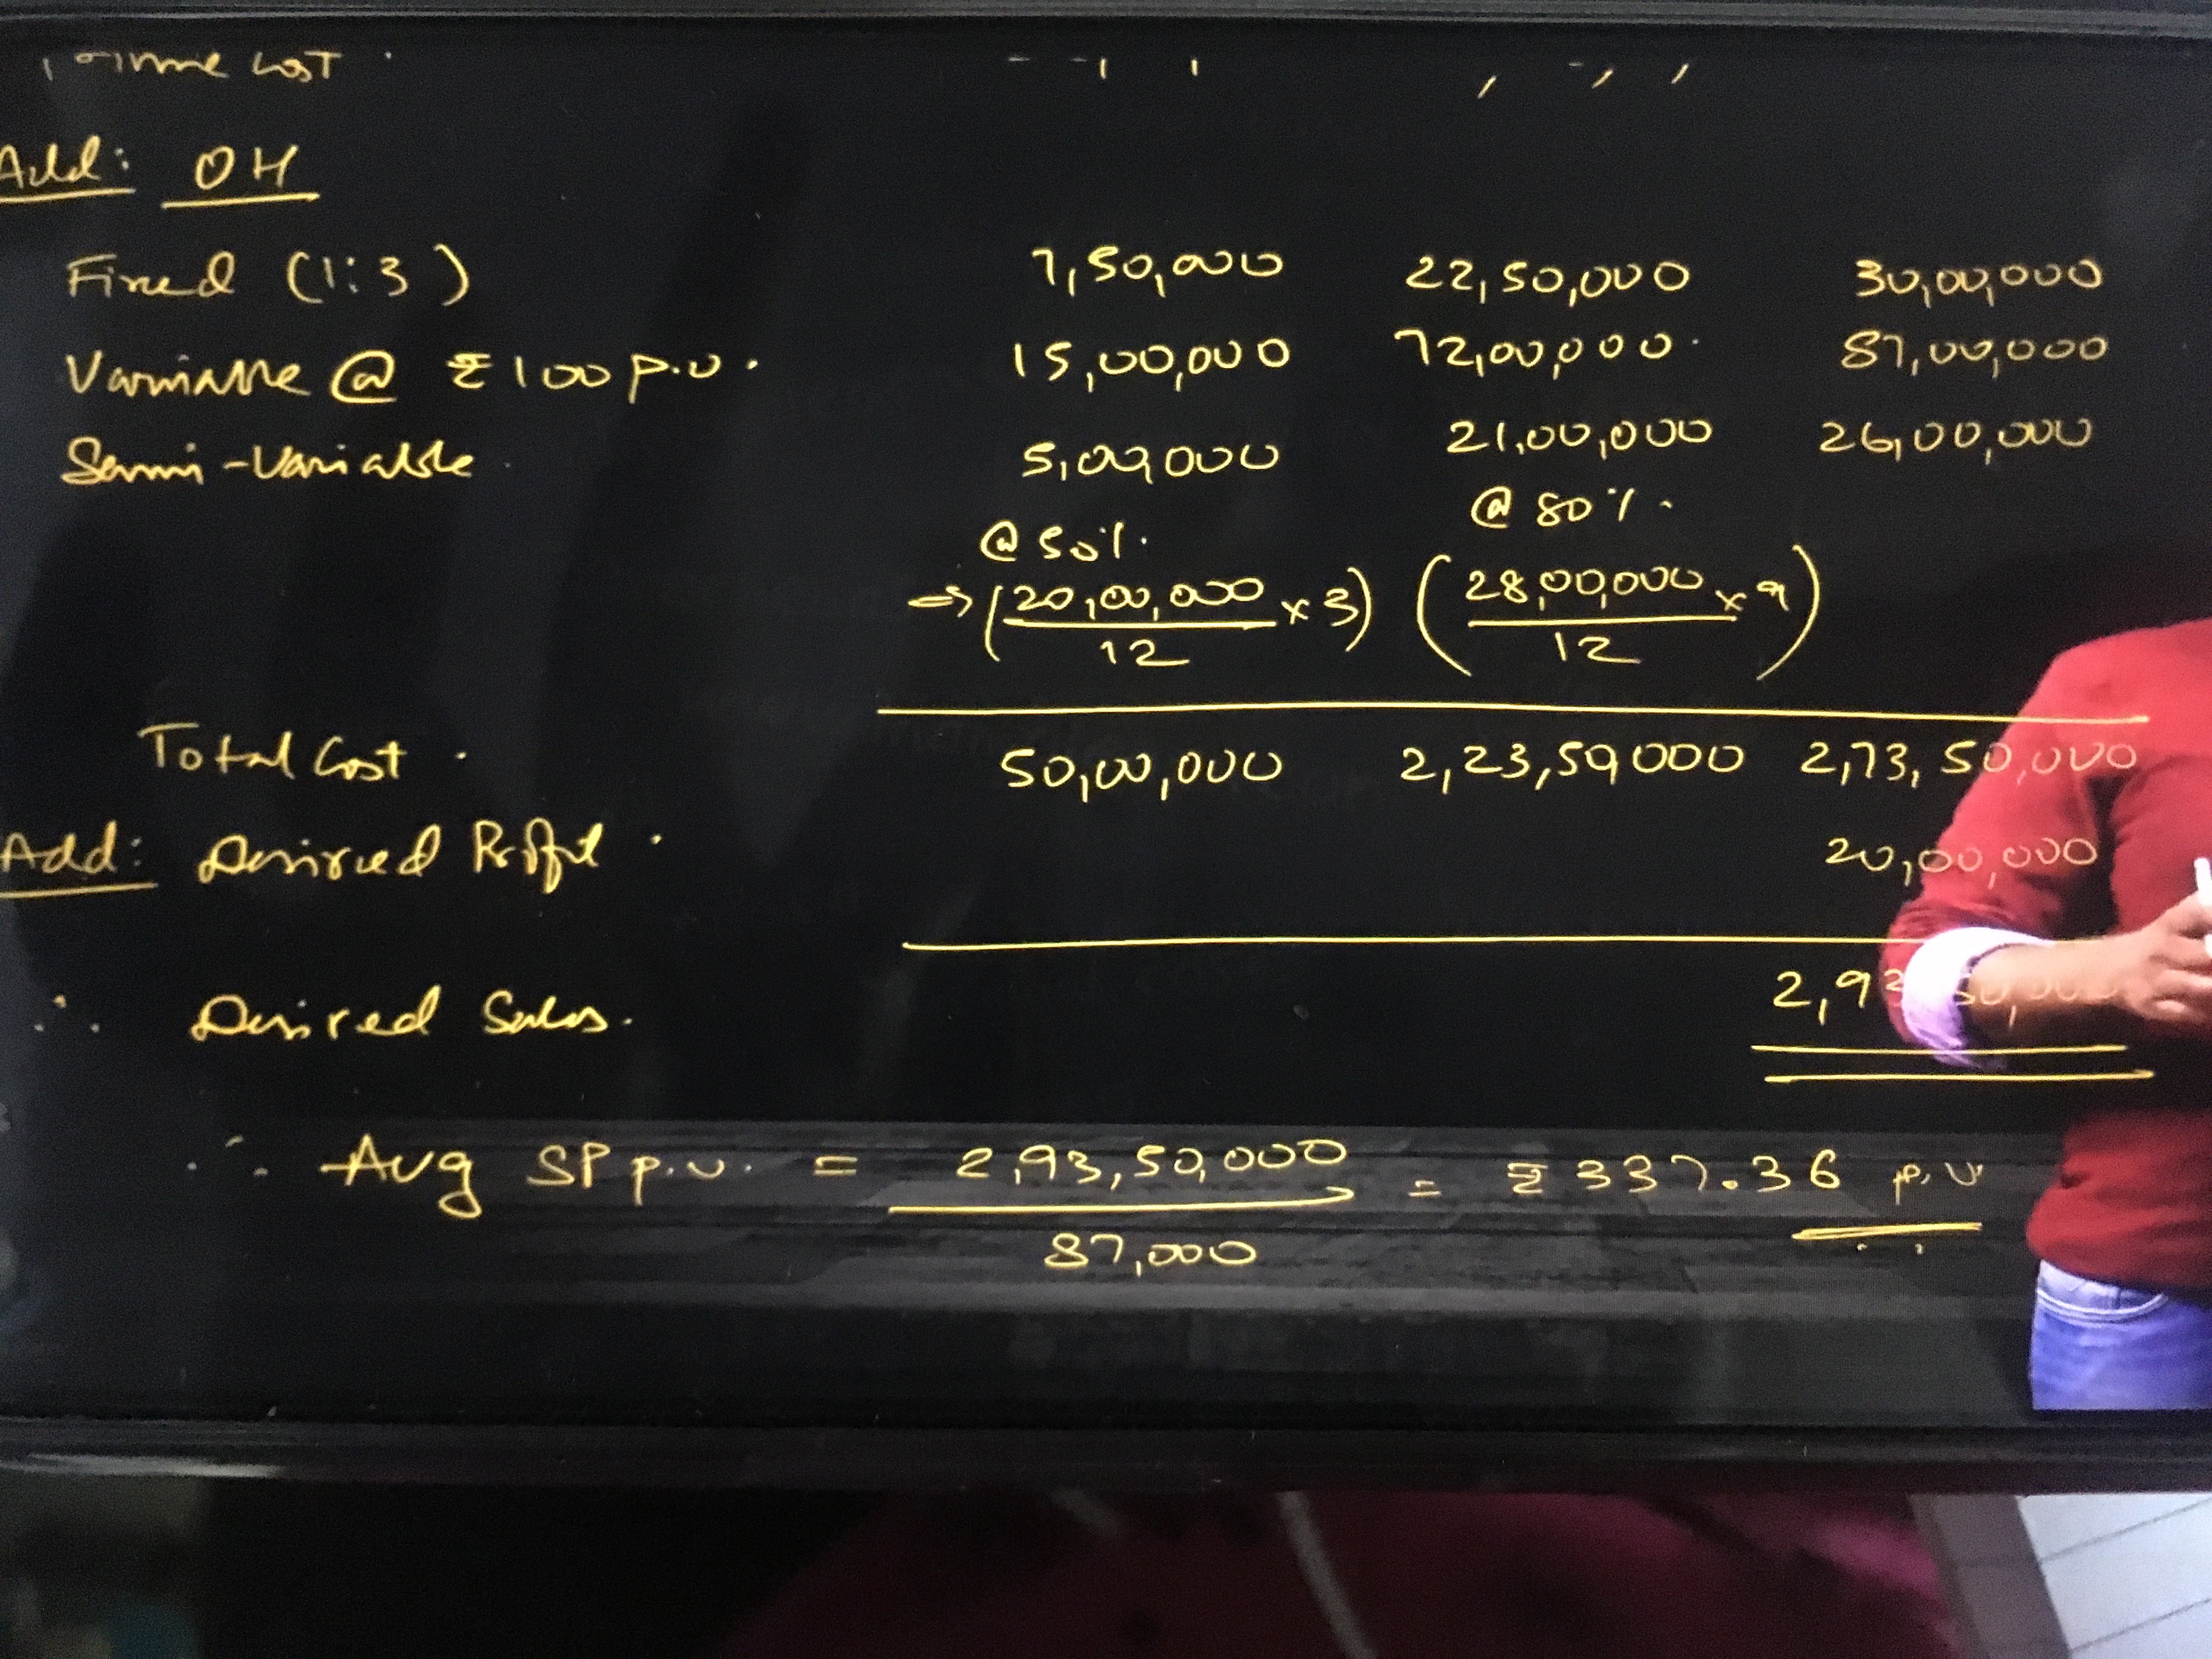 Prime Cost
Add: OH
Fixed (1:3) 7,50,000 22,50,000 30,00,000
Variable @ ₹100 p.u. 15,00,000 72,00,000 87,00,000
Semi-Variable 5,00,000 21,00,000 26,00,000
@ 50% @ 80%
⇒ (20,00,000 / 12 × 3) (28,00,000 / 12 × 9)
Total Cost 50,00,000 2,23,50,000 2,73,50,000
Add: Desired Profit 20,00,000
∴ Desired Sales. 2,93,50,000
∴ Avg SP p.u. = 2,93,50,000 / 87,000 = ₹337.36 p.u